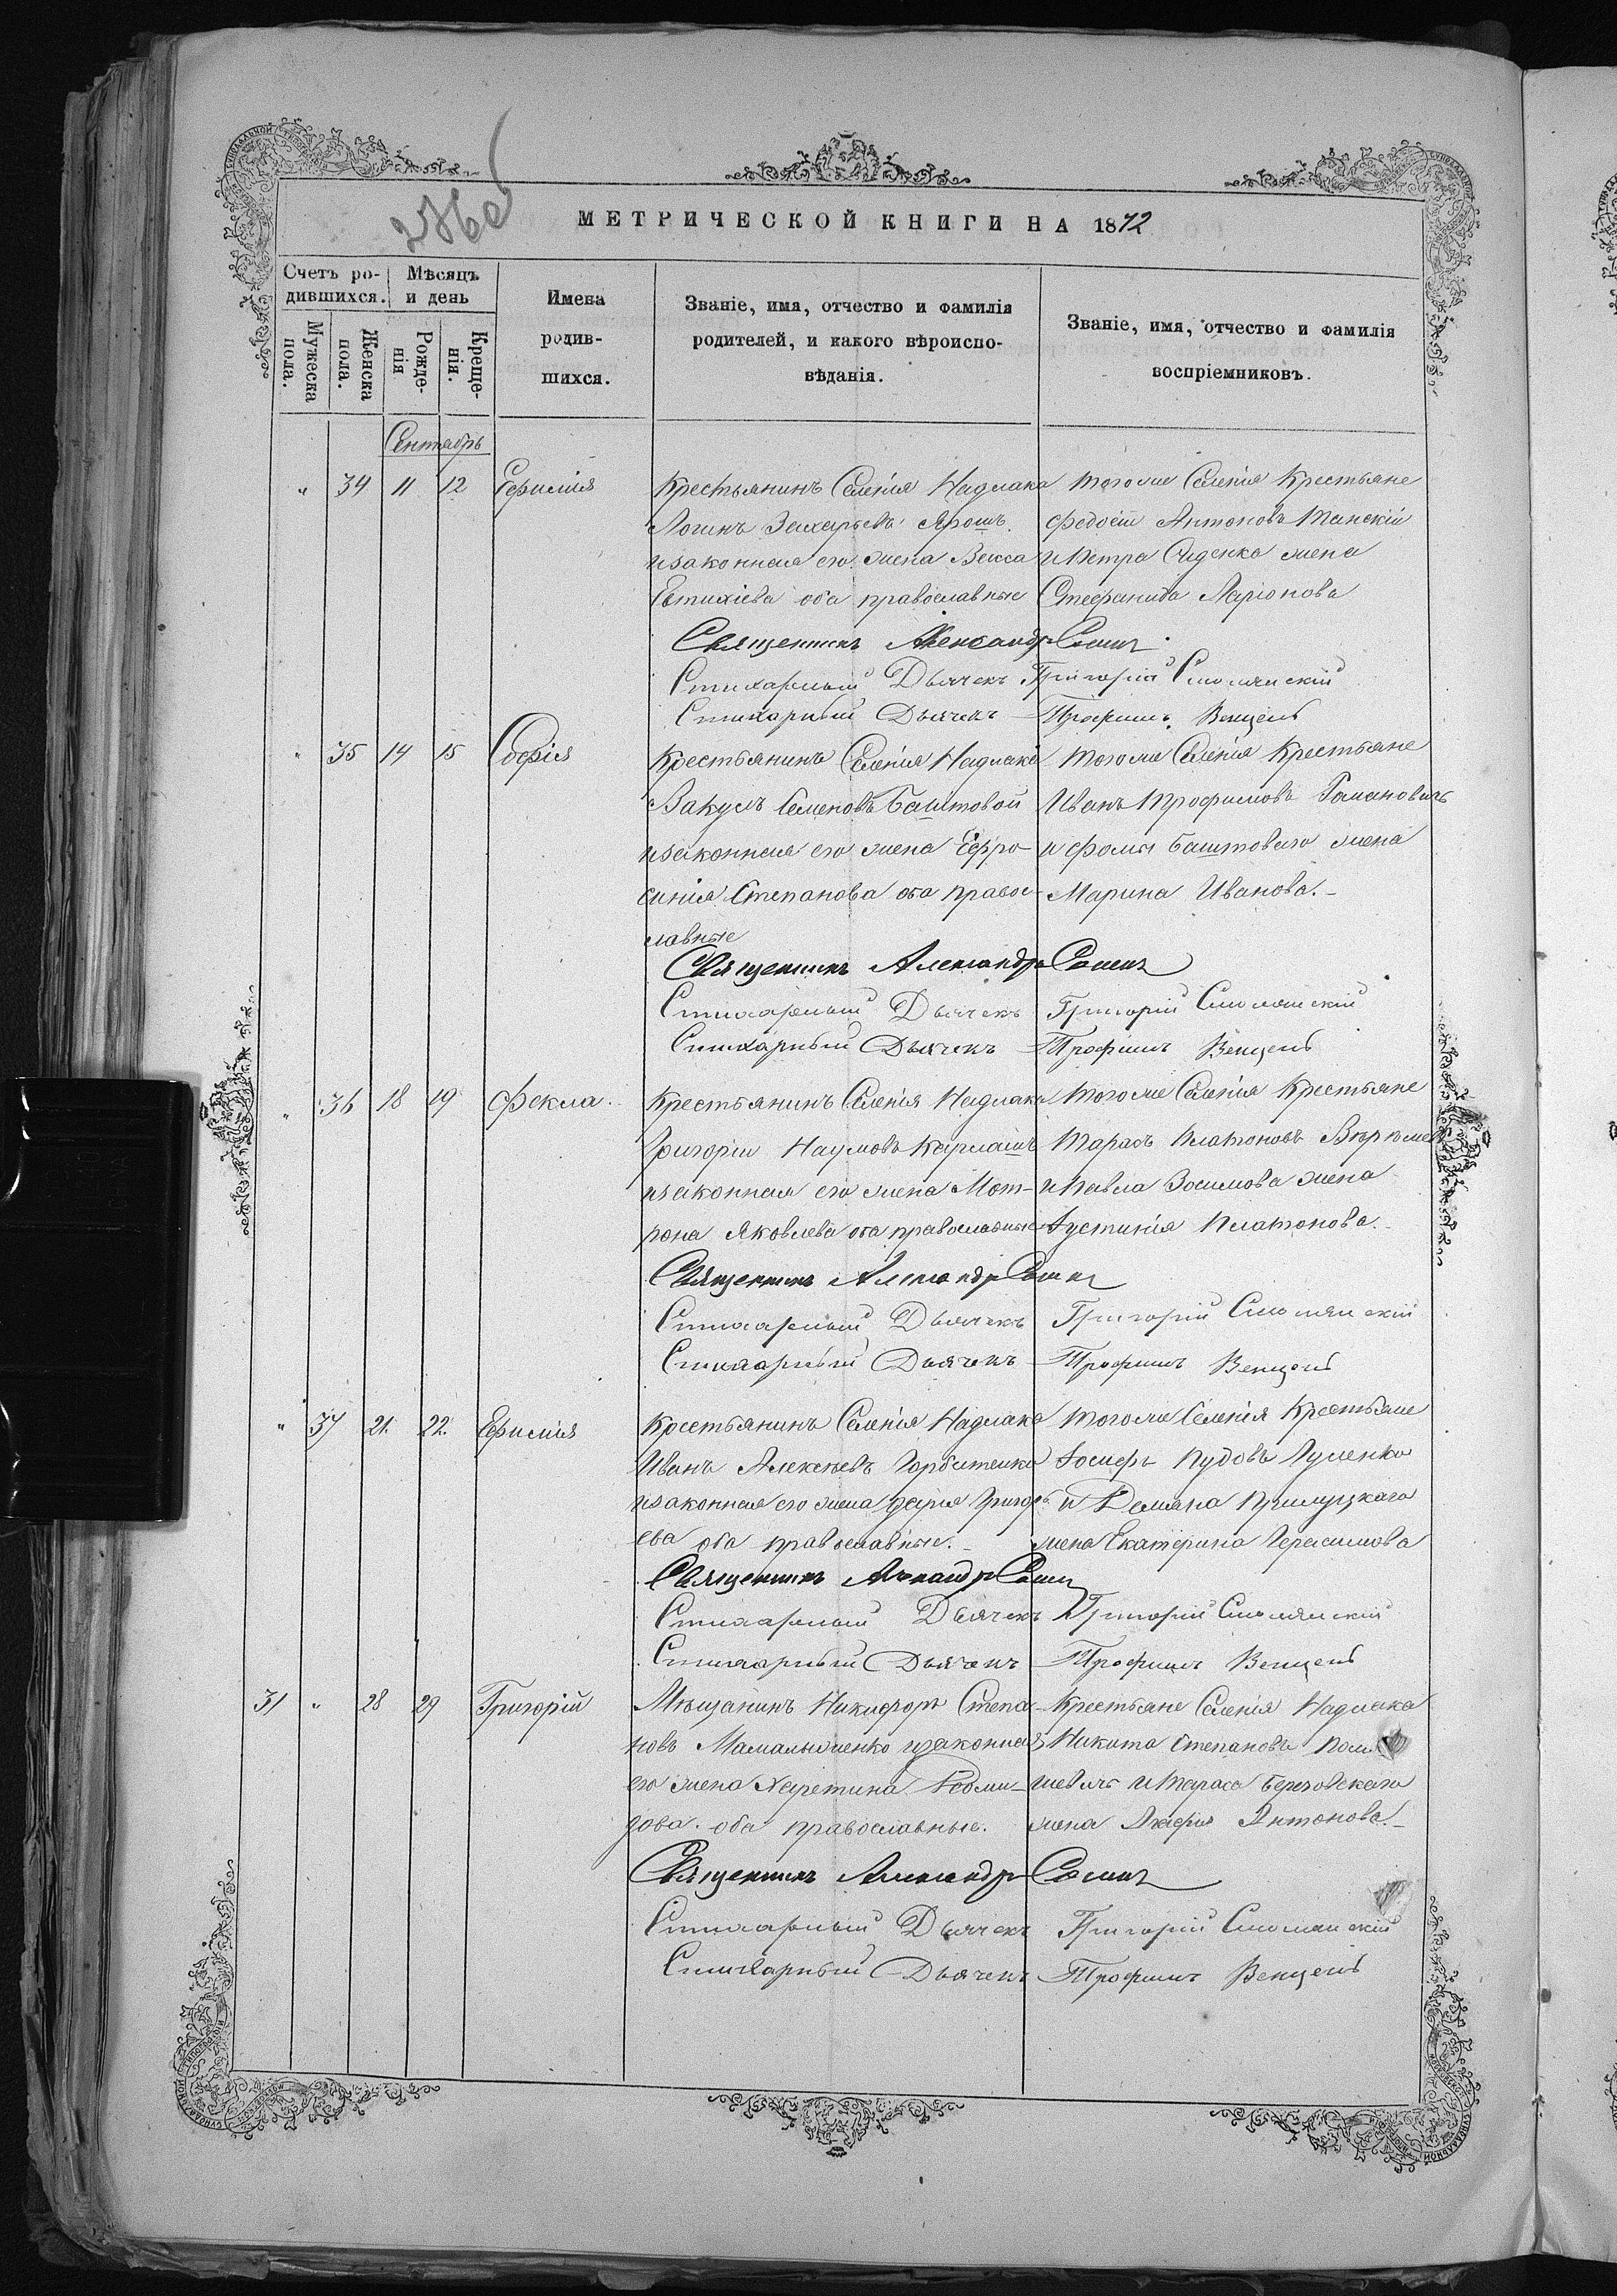 МЕТРИЧЕСКОЙ КНИГИ НА 1872
Счетъ ро-
дившихся.
Мѣсяцъ
и день
Мужеска
пола.
Женска
пола.
Рожде-
нія
Креще-
нія.
Имена
родив-
шихся.
Званіе, имя, отчество и фамилія
родителей, и какого вѣроиспо-
вѣданія.
Званіе, имя, отчество и фамилія
воспріемниковъ.
Сентябрь
" 34 11 12 Ефимія
Крестьянинъ Селенія Надлака
Логинъ Захарьевъ Ярошъ
и законная его жена Васса
Евтихіева оба православные
Тогоже Селенія Крестьяне
Федосій Антоновъ Танскій
и Петра Сиденка жена
Стефанида Ларіонова
Священникъ Александръ
Стихарный Дьячекъ Григорій Смолянскій
Стихарный Дьячекъ Трофимъ Венцель
" 35 14 15 Софія
Крестьянинъ Селенія Надлака
Вакулъ Семеновъ Баштовой
и законная его жена Евфро-
синія Степанова оба право-
славные
Тогоже Селенія Крестьяне
Иванъ Трофимовъ Романовичъ
и Фомы Баштоваго жена
Марина Иванова.
Священникъ Александръ
Стихарный Дьячекъ Григорій Смолянскій
Стихарный Дьячекъ Трофимъ Венцель
" 36 18 19 Фекла.
Крестьянинъ Селенія Надлака
Григорій Наумовъ
и законная его жена Мот-
рона Яковлева оба православные
Тогоже Селенія Крестьяне
Тарасъ Платоновъ
и Павла Зосимова жена
Іустинія Платонова.
Священникъ Александръ
Стихарный Дьячекъ Григорій Смолянскій
Стихарный Дьячекъ Трофимъ Венцель
" 37 21. 22. Ефимія
Крестьянинъ Селенія Надлака
Иванъ Алексѣевъ
и законная его жена Дарія Григорь-
ева оба православные.
Тогоже Селенія Крестьяне
Іосифъ Пудовъ Луценко
и Демьяна Прилуцкаго
жена Екатерина Герасимова
Священникъ Александръ
Стихарный Дьячекъ Григорій Смолянскій
Стихарный Дьячекъ Трофимъ Венцель
31 " 28 29 Григорій
Мѣщанинъ Никифоръ Степа-
новъ и законная
его жена Харитина
дова оба православные.
Крестьяне Селенія Надлака
Никита Степановъ
и Тараса Береговскаго
жена Агафія Антонова.
Священникъ Александръ
Стихарный Дьячекъ Григорій Смолянскій
Стихарный Дьячекъ Трофимъ Венцель